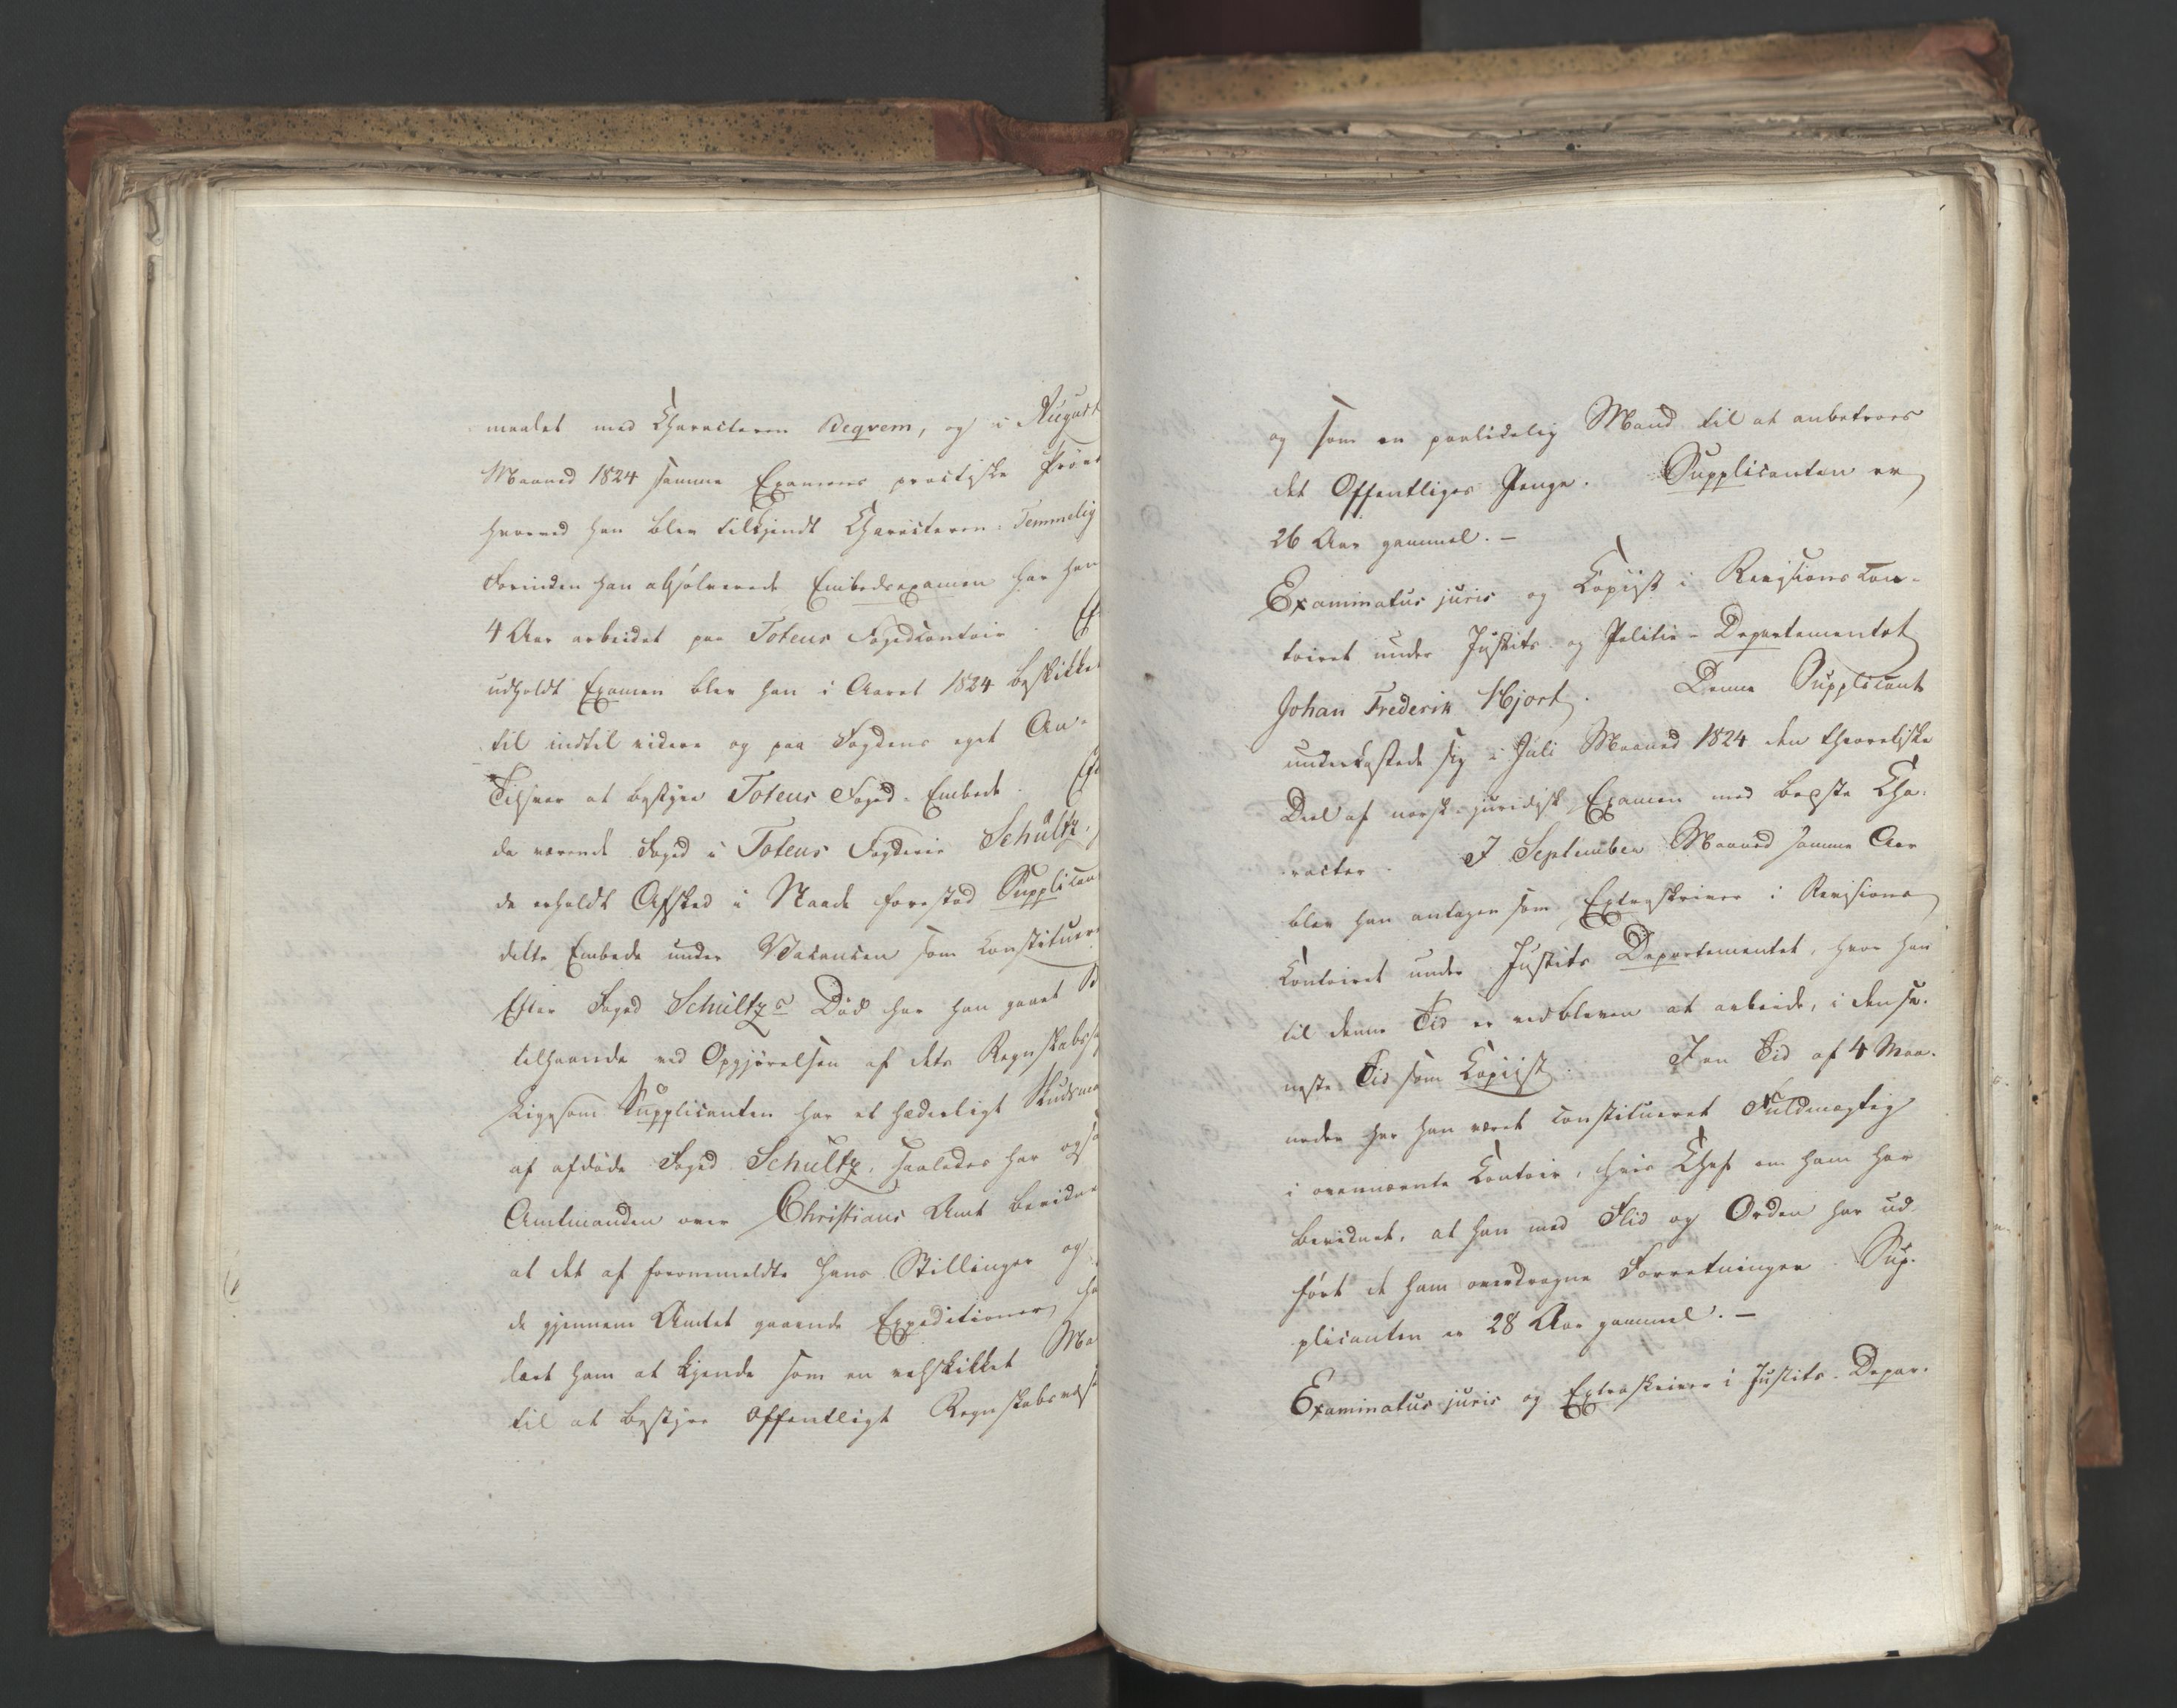 maalet med Characteren Beqvem, og i August
Maaned 1824 samme Examens practiske Prøve
hvorved han blev tilkjendt Characteren: Temmelig
Forinden han absolverede Embedsexamen har han
4 Aar arbeidet paa Totens Fogedcontoir. Ef
udholdt Examen blev han i Aaret 1824 beskikket
til indtil videre og paa Fogdens eget An-
Tilsvar at bestyre Totens Foged-Embede. Ef
da værende Foged i Totens Fogderie Schultz,
de erholdt Afsked i Naade forestod Supplican
dette Embede under Vacancen som constituer
Efter Foged Schultz's Død har han gaaet B
tilhaande ved Opgjørelsen af dets Regnskabs
Ligesom Supplicanten har et hæderligt Skudsma
af afdøde Foged Schultz, saaledes har ogsa
Amtmanden over Christians Amt bevidne
at det af forommeldte hans Stillinger og
de gjennem Amtet gaaende Expeditioner ha
lært ham at kjende som en velskikket Ma
til at bestyre offentligt Regnskabsvæs
og som en paalidelig Mand til at anbetroes
det Offentliges Penge. Supplicanten er
26 Aar gammel. –
Examinatus juris og Kopiist i Revisionscon-
toiret under Justits- og Politie-Departementet
Johan Frederik Hjort. Denne Supplicant
underkastede sig i Juli Maaned 1824 den theoretiske
Deel af norsk-juridisk Examen med bedste Cha-
racter. I September Maaned samme Aar
blev han antagen som Extraskriver i Revisions
Contoiret under Justits Departementet, hvor han
til denne Tid er vedbleven at arbeide, i den se-
neste Tid som Kopiist. I en Tid af 4 Maa-
neder har han været constitueret Fuldmægtig
i ovennævnte Contoir, hvis Chef om ham har
bevidnet, at han med Flid og Orden har ud-
ført de ham overdragne Forretninger. Sup-
plicanten er 28 Aar gammel. –
Examinatus juris og Extraskriver i Justits-Depar-